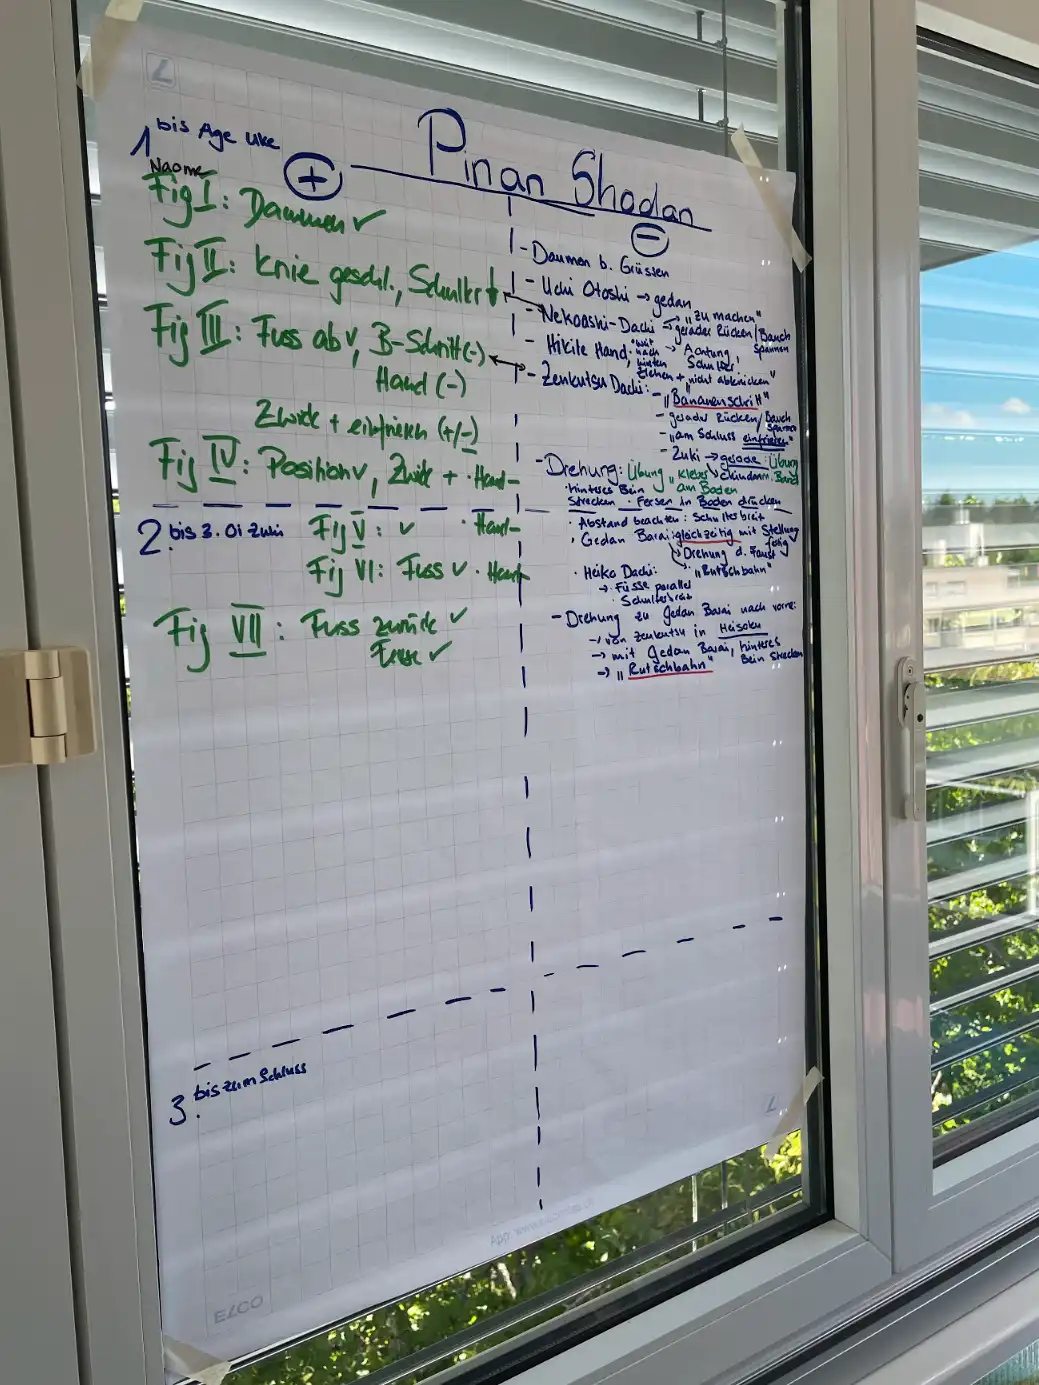 L
Pinan Shodan
1 bis Age Uke
Naome
+
Fig I: Daumen ✓
Fig II: Knie geschl., Schulter ↓
Fig III: Fuss ab ✓, B-Schritt (-)
Hand (-)
Zwick + einfrieren (+/-)
Fig IV: Position ✓, Zwick + · Hand -
2. bis 3. Oi Zuki
Fig V: ✓ · Hand -
Fig VI: Fuss ✓ · Hand -
Fig VII: Fuss zurück ✓
✓
3. bis zum Schluss
-
- Daumen b. Grüssen
- Uchi Otoshi → gedan
- Nekoashi-Dachi → "zu machen"
→ gerader Rücken/Bauch
spannen
- Hikite Hand: mit → Achtung,
nach Schulter
hinten
ziehen + "nicht abknicken"
- Zenkutsu Dachi:
- "Bananenschritt"
- gerader Rücken/Bauch
spannen
- "am Schluss einfrieren"
- Zuki → gerade: Übung
- Drehung: Übung "Kleber am Boden
· hinteres Bein
strecken · Fersen in Boden drücken
· Abstand beachten: Schulterbreit
· Gedan Barai: gleichzeitig mit Stellung
fertig
→ Drehung d. Faust
→ "Rutschbahn"
· Heiko Dachi:
→ Füsse parallel
· Schulterbreit
- Drehung zu Gedan Barai nach vorne:
→ von Zenkutsu in Heisoku
→ mit Gedan Barai, hinteres
Bein strecken
→ "Rutschbahn"
L
ELCO